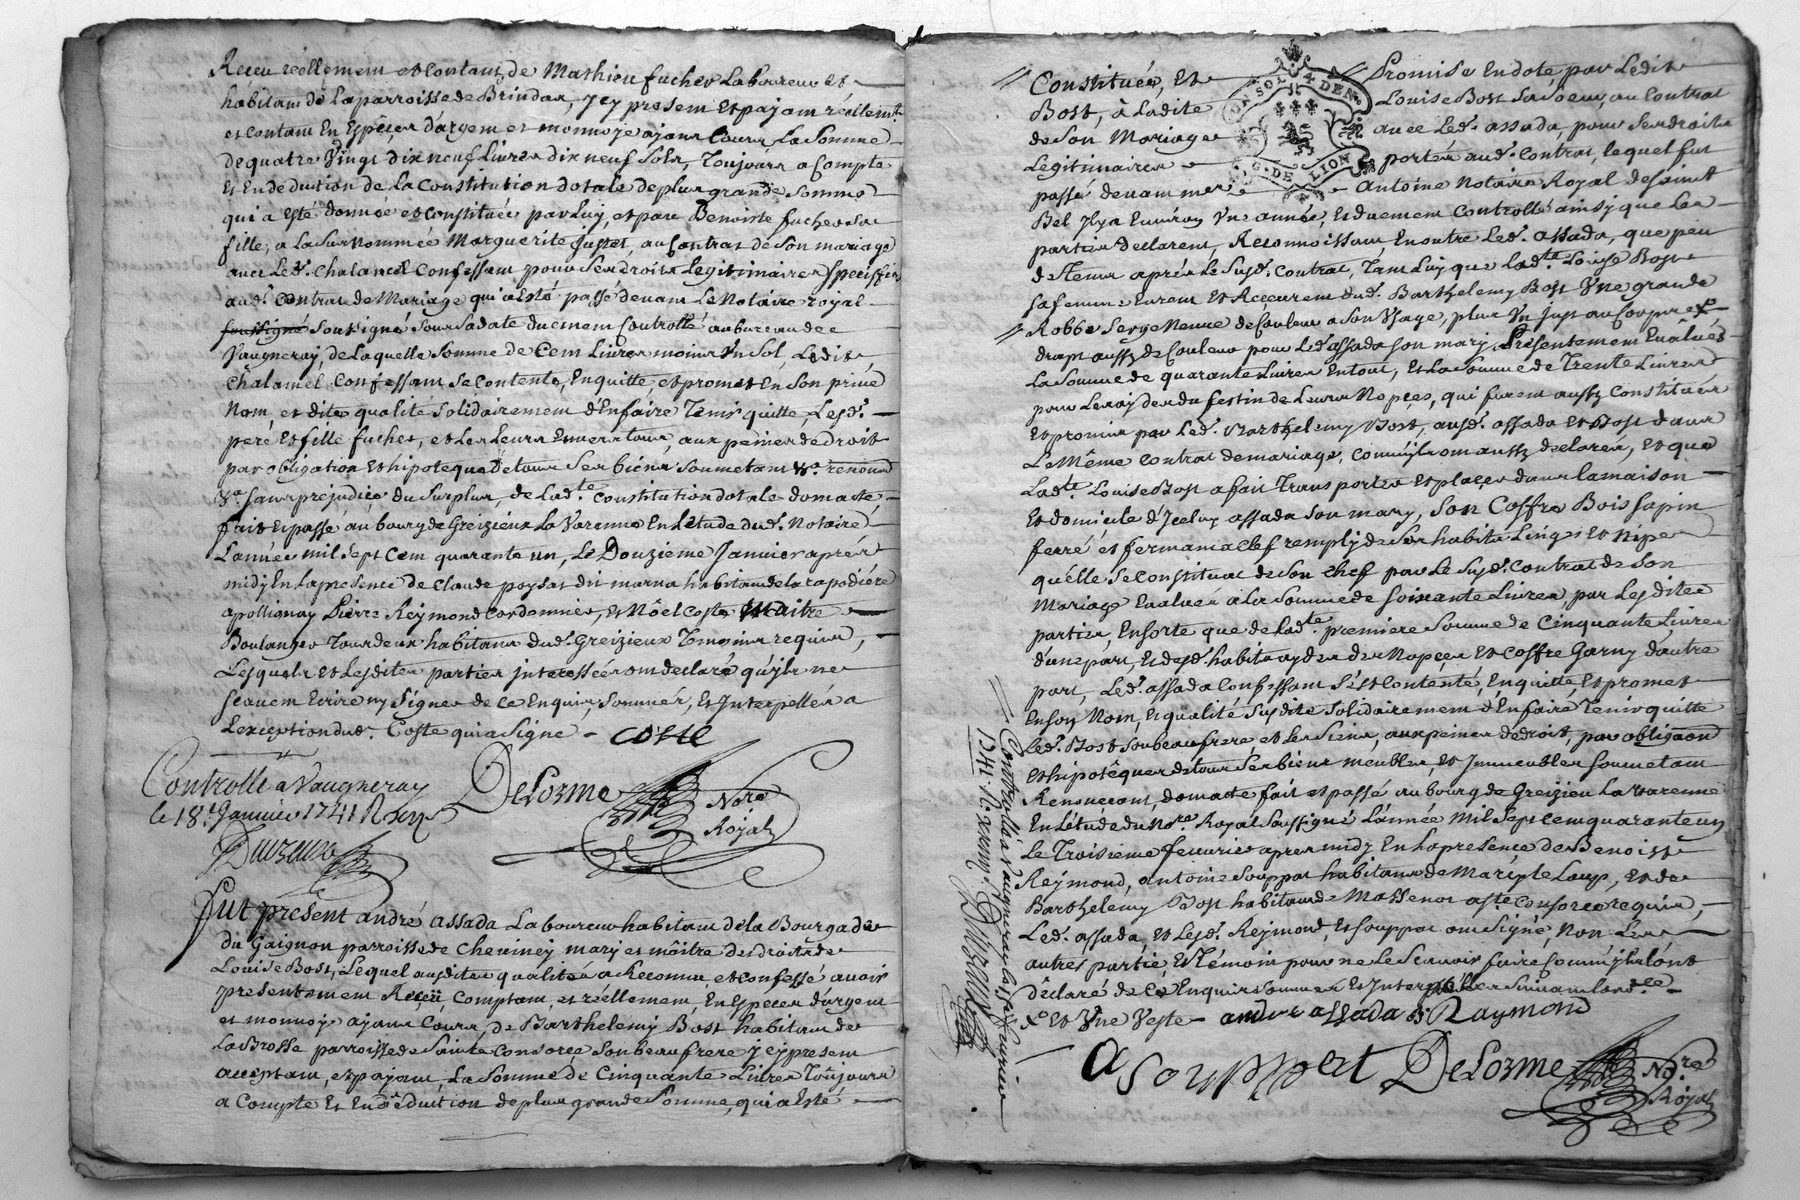 Receu réellement et Contant, de Mathieu fucher Laboureur et
habitant de la parroisse de Brindas, Icy present et payant réellemt.
et contant En Espèces d'argent et monnoye ayant Cours La Somme
de quatre Vingt dix neuf Livres dix neuf Sols, Toujours a Compte
Et En deduction de la Constitution dotale de plus grande Somme
qui a esté donnée et constituée par Luy, et par Benoiste fucher sa
fille, a La Surnommée Marguerite Justet, au Contrat de Son mariage
avec Led. Chalamel Confessant pour Ses droits Legitimaires Speciffiés
aud. Contrat de Mariage qui a Esté passé devant Le Notaire royal
soussigné Soussigné Sous Sa date duement Controllé au bureau de
Vaugneray, de Laquelle Somme de Cent Livres moins Un Sol, Ledit
Chalamel Confessant Se Contente, En quitte, et promet En Son privé
Nom, et dite qualité Solidairement d'En faire Tenir quitte, Lesd.
peré Et fille fucher, et Les Leurs Envers tous, aux peines de droit
par obligation Et hipoteque de tous Ses biens Soumetant &a. renonct.
&a. Sans prejudice du Surplus, de Lad.te Constitution dotale dont acte,
fait Et passé au bourg de Greizieux La Varenne En L'étude dud. Notaire
L'année mil Sept Cent quarante un, Le Douzieme Janvier aprés
midy En La presence de Claude poysat dit marna habitant de la rapodiére
a pollionay Pierre Reymond Cordonnier, Et Nöel Coste Maitre
Boulanger Tous deux habitans dud. Greizieux Temoins requis,
Lesquels et Lesdites parties interessées ont declaré qu'ils ne
scavent Ecrire ny Signer de Ce Enquis, Sommés, Et Interpellés a
L'exception dud. Coste qui a Signe - coste
Controllé a Vaugneray
le 18.e Janvier 1741 R xij s
DeLorme Nore
Royal
Fut present andré assada Laboureur habitant de la Bourgade
du Gaignon parroisse de Cheviney mary et maitre des droits de
Louise Bost, Lequel ausdites qualités a Reconnu et confessé avoir
presentement Reçeü Comptant, et réellement En Especes d'argent
et monnoye ayant Cours, de Barthelemy Bost habitant de
La Brosse parroisse de Sainte Consorce Son beau frere Icy present
acceptant, et payant, La Somme de Cinquante Livres Toujours
a Compte Et En déduction de plus grande Somme, qui a Esté
Constituée, Et Promise En dote, par Ledit
Bost, à Ladite Louise Bost Sa Soeur, au Contrat
de Son Mariage avec Led. assada, pour Ses droits
Legitimaires portés aud. Contrat, lequel fut
passé devant me Antoine Notaire Royal de Saint
Bel Il y a Environ Une année, Et duement Controllé ainsy que Les
parties declarent, Reconnoissant En outre Led. assada, que peu
de Tems aprés Le Susd. Contrat, Tant Luy que Lad.te Louise Bost
Sa femme Eurent Et Receurent dud. Barthelemy Bost Une grande
Robbe Serge Neuve de Couleur a Son Usage, plus Un Just au Corps
drap aussy de Couleur pour Led. assada Son mary, Présentement Evalués
La Somme de quarante Livres En tout, Et La Somme de Trente Livres
pour Le rayde du festin de Leurs Nopçes, qui furent aussy Constitués
Et promis par Led. Barthelemy Bost, ausd. assada et Bost dans
Le Même Contrat de mariage, Comm'ils ont aussy declaré, Et que
Lad.te Louise Bost a fait Transporter et placer dans la maison
Et domicile d'Iceluy assada Son mary, Son Coffre Bois Sapin
ferré et fermant a Clef remply de Ses habits Linges et Nipes
qu'elle Se Constituat de Son Chef par Le Susd. Contrat de Son
Mariage Evalués a La Somme de Soixante Livres, par Lesdites
parties, En Sorte que de Lad.te premiere Somme de Cinquante Livres
d'une part, Et desd. habits rayde des Nopçes Et Coffre Garny d'autre
part, Led. assada Confessant S'est Contenté, En quitte, Et promet
En Son Nom, Et qualité Susdite Solidairement d'En faire Tenir quitte
Led. Bost Son beau frere, et Les Siens, aux peines de droit, par obligaon
Et hipotêque de tous Ses biens meubles, et Immeubles Soumetant
Renonçant, dont acte fait et passé au bourg de Greizieu La Varenne
En L'étude du Nore. Royal Soussigné L'année Mil Sept Cent quarante un
Le Troisieme fevrier apres midy En La presence de Benoist
Reymond, antoine Souppat habitans de Marcy le Loup, et de
Barthelemy Bost habitant de Massenot a ste. Consorce requis,
Led. assada, Et Lesd. Reymond, Et Souppat ont Signé, Non Les
autres partie, Et Témoin pour ne Le Scavoir faire Comm'ils l'ont
déclaré de Ce Enquis Sommés Et Interpellés Suivant Lord.ce
&e Et Une Veste - andre assada B Raymond
A Souppat DeLorme Nore
Royal
Controllé a Vaugneray le
1741. R. xviij s.